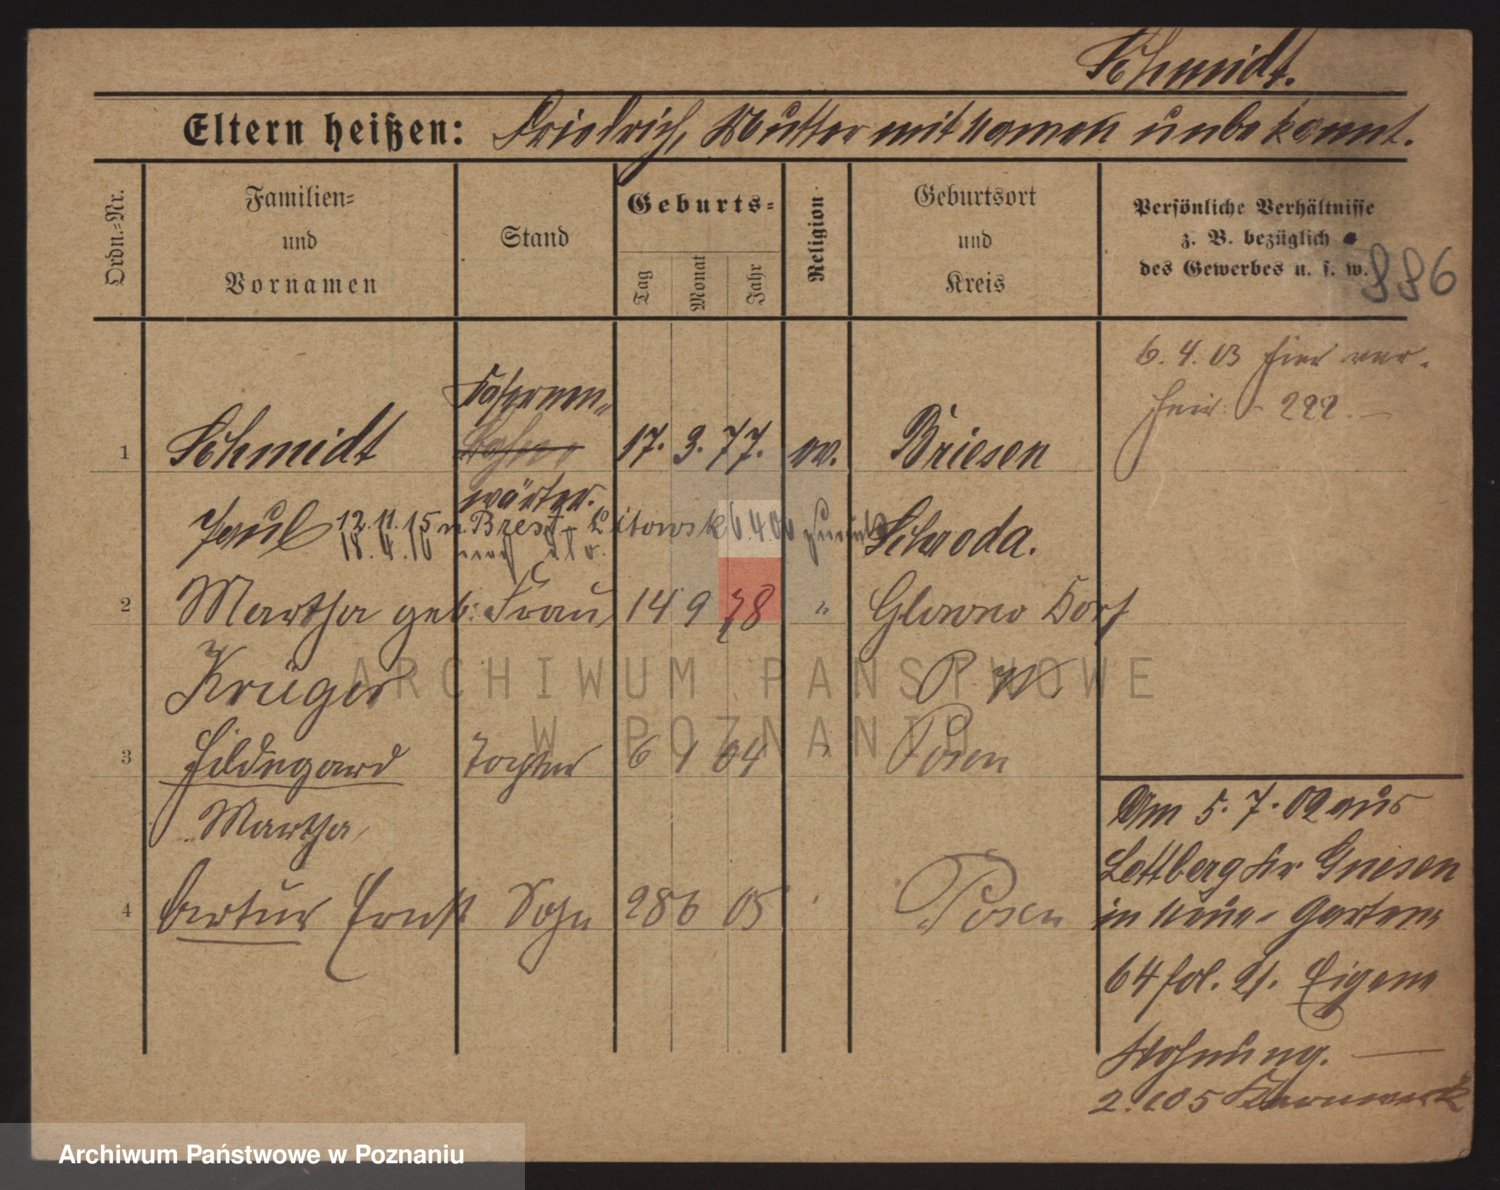 Schmidt.
Eltern heißen: Friedrich, Mutter mit Namen unbekannt.
Ordn.-Nr.
Familien- und Vornamen
Stand
Geburts-
Tag Monat Jahr
Religion
Geburtsort und Kreis
Persönliche Verhältnisse
z. B. bezüglich
des Gewerbes u. s. w.
886
6. 4. 03 hier ver-
222.
Kasernen-
1 Schmidt 17. 3. 77. ev. Briesen
wärter.
Paul 12.11.15 n. Brest-Litowsk 6.4.06 zurück Schroda.
18. 4. 16
2 Martha geb: Frau 14 9 78 " Glowno Dorf
Krüger P. W
3 Hildegard Tochter 6 1 04 " Posen
Martha
4 Artur Ernst Sohn 28 6 05 Posen
Am 5. 7. 02 aus
Lettberg Kr Gnesen
in Gartenstr
64 fol. 21. Eigene
Wohnung.
2. 105 Kernwerk
ARCHIWUM PAŃSTWOWE
W POZNANIU
Archiwum Państwowe w Poznaniu